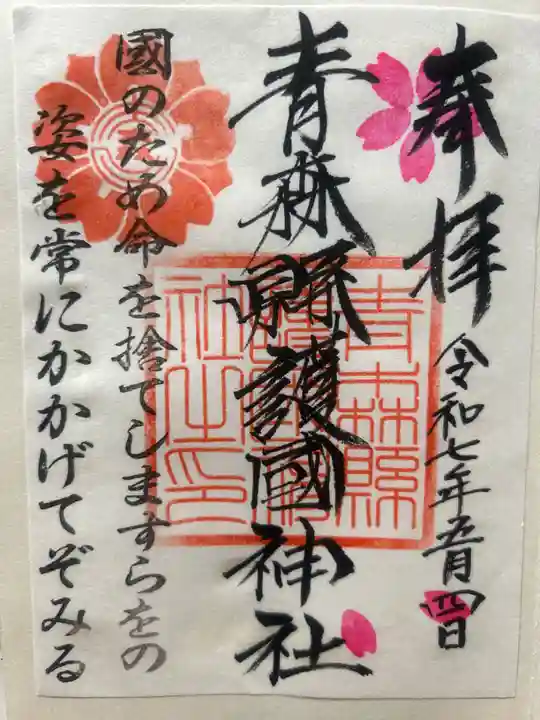 奉拝
令和七年五月四日
青森縣護國神社
青森縣護國神社之印
國のため命を捨てしますらをの
姿を常にかかげてぞみる